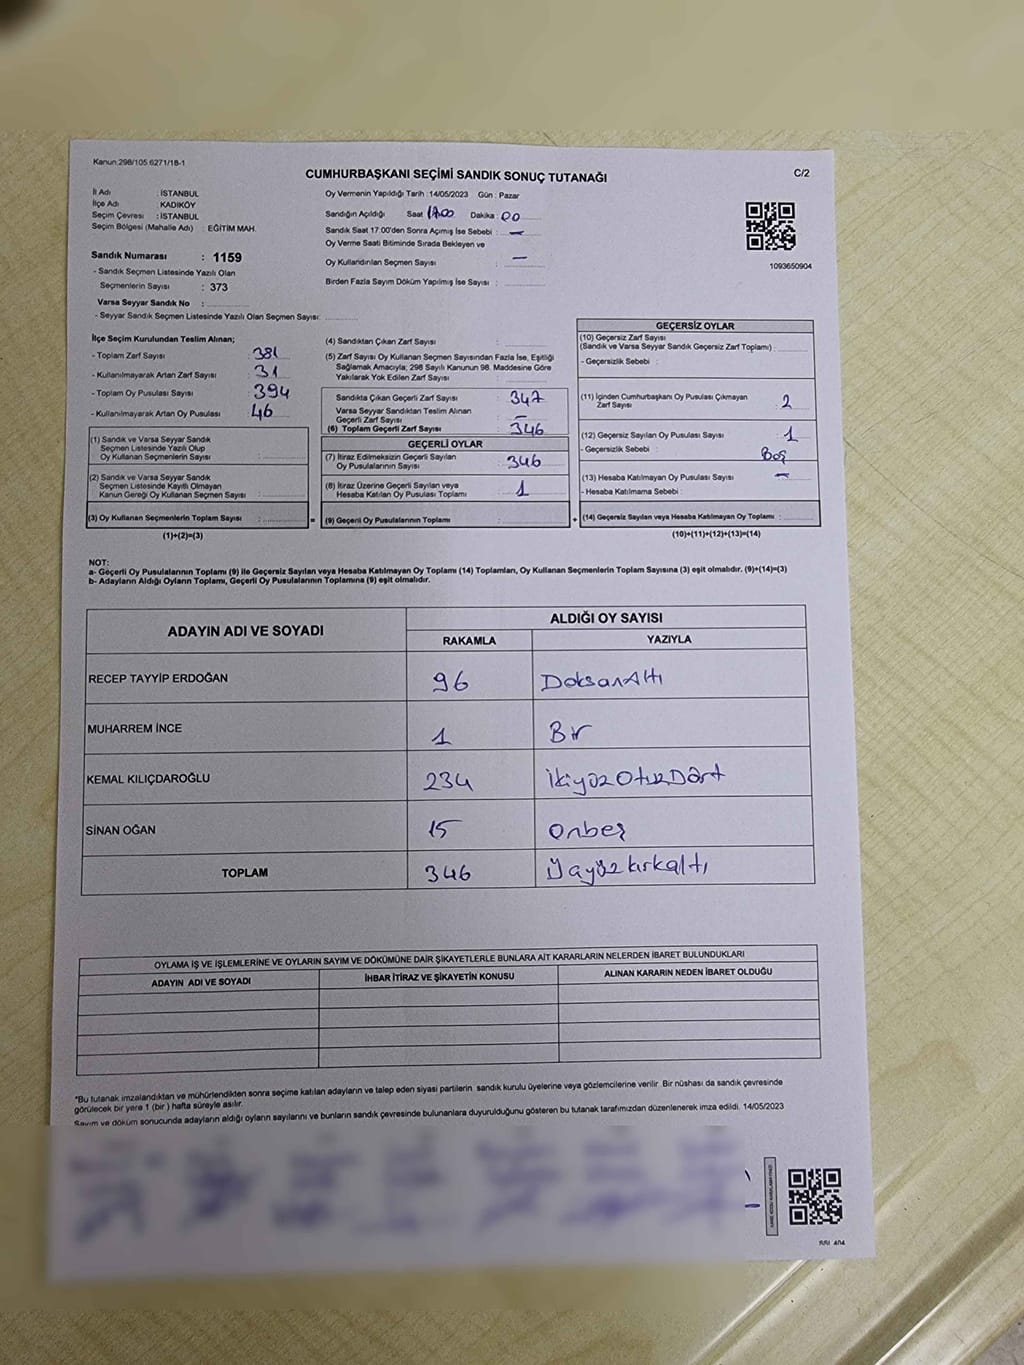 Kanun:298/105 6271/18-1
CUMHURBAŞKANI SEÇİMİ SANDIK SONUÇ TUTANAĞI
C/2
İl Adı : İSTANBUL
İlçe Adı : KADIKÖY
Seçim Çevresi : İSTANBUL
Seçim Bölgesi (Mahalle Adı) : EĞİTİM MAH.
Sandık Numarası : 1159
- Sandık Seçmen Listesinde Yazılı Olan
Seçmenlerin Sayısı : 373
Varsa Seyyar Sandık No :
- Seyyar Sandık Seçmen Listesinde Yazılı Olan Seçmen Sayısı:
Oy Vermenin Yapıldığı Tarih :14/05/2023 Gün : Pazar
Sandığın Açıldığı Saat Dakika : 00
Sandık Saat 17.00'den Sonra Açılmış İse Sebebi : —
Oy Verme Saati Bitiminde Sırada Bekleyen ve
Oy Kullandırılan Seçmen Sayısı : —
Birden Fazla Sayım Döküm Yapılmış İse Sayısı :
1093650904
İlçe Seçim Kurulundan Teslim Alınan;
- Toplam Zarf Sayısı : 381
- Kullanılmayarak Artan Zarf Sayısı : 31
- Toplam Oy Pusulası Sayısı : 394
- Kullanılmayarak Artan Oy Pusulası : 46
(1) Sandık ve Varsa Seyyar Sandık
Seçmen Listesinde Yazılı Olup
Oy Kullanan Seçmenlerin Sayısı :
(2) Sandık ve Varsa Seyyar Sandık
Seçmen Listesinde Kayıtlı Olmayan
Kanun Gereği Oy Kullanan Seçmen Sayısı :
(3) Oy Kullanan Seçmenlerin Toplam Sayısı :
(1)+(2)=(3)
(4) Sandıktan Çıkan Zarf Sayısı :
(5) Zarf Sayısı Oy Kullanan Seçmen Sayısından Fazla İse, Eşitliği
Sağlamak Amacıyla; 298 Sayılı Kanunun 98. Maddesine Göre
Yakılarak Yok Edilen Zarf Sayısı :
Sandıkta Çıkan Geçerli Zarf Sayısı : 347
Varsa Seyyar Sandıktan Teslim Alınan
Geçerli Zarf Sayısı : —
(6) Toplam Geçerli Zarf Sayısı : 346
GEÇERLİ OYLAR
(7) İtiraz Edilmeksizin Geçerli Sayılan
Oy Pusulalarının Sayısı : 346
(8) İtiraz Üzerine Geçerli Sayılan veya
Hesaba Katılan Oy Pusulası Toplamı : 1
= (9) Geçerli Oy Pusulalarının Toplamı :
GEÇERSİZ OYLAR
(10) Geçersiz Zarf Sayısı
(Sandık ve Varsa Seyyar Sandık Geçersiz Zarf Toplamı) :
- Geçersizlik Sebebi :
(11) İçinden Cumhurbaşkanı Oy Pusulası Çıkmayan
Zarf Sayısı : 2
(12) Geçersiz Sayılan Oy Pusulası Sayısı : 1
- Geçersizlik Sebebi : Boş
(13) Hesaba Katılmayan Oy Pusulası Sayısı : —
- Hesaba Katılmama Sebebi :
+ (14) Geçersiz Sayılan veya Hesaba Katılmayan Oy Toplamı :
(10)+(11)+(12)+(13)=(14)
NOT:
a- Geçerli Oy Pusulalarının Toplamı (9) ile Geçersiz Sayılan veya Hesaba Katılmayan Oy Toplamı (14) Toplamları, Oy Kullanan Seçmenlerin Toplam Sayısına (3) eşit olmalıdır. (9)+(14)=(3)
b- Adayların Aldığı Oyların Toplamı, Geçerli Oy Pusulalarının Toplamına (9) eşit olmalıdır.
ADAYIN ADI VE SOYADI
ALDIĞI OY SAYISI
RAKAMLA YAZIYLA
RECEP TAYYİP ERDOĞAN 96 DoksanAltı
MUHARREM İNCE 1 Bir
KEMAL KILIÇDAROĞLU 234 İkiyüzOtuzDört
SİNAN OĞAN 15 Onbeş
TOPLAM 346 Üçyüzkırkaltı
OYLAMA İŞ VE İŞLEMLERİNE VE OYLARIN SAYIM VE DÖKÜMÜNE DAİR ŞİKAYETLERLE BUNLARA AİT KARARLARIN NELERDEN İBARET BULUNDUKLARI
ADAYIN ADI VE SOYADI İHBAR İTİRAZ VE ŞİKAYETİN KONUSU ALINAN KARARIN NEDEN İBARET OLDUĞU
*Bu tutanak imzalandıktan ve mühürlendikten sonra seçime katılan adayların ve talep eden siyasi partilerin sandık kurulu üyelerine veya gözlemcilerine verilir. Bir nüshası da sandık çevresinde
görülecek bir yere 1 (bir ) hafta süreyle asılır.
Sayım ve döküm sonucunda adayların aldığı oyların sayılarını ve bunların sandık çevresinde bulunanlara duyurulduğunu gösteren bu tutanak tarafımızdan düzenlenerek imza edildi. 14/05/2023